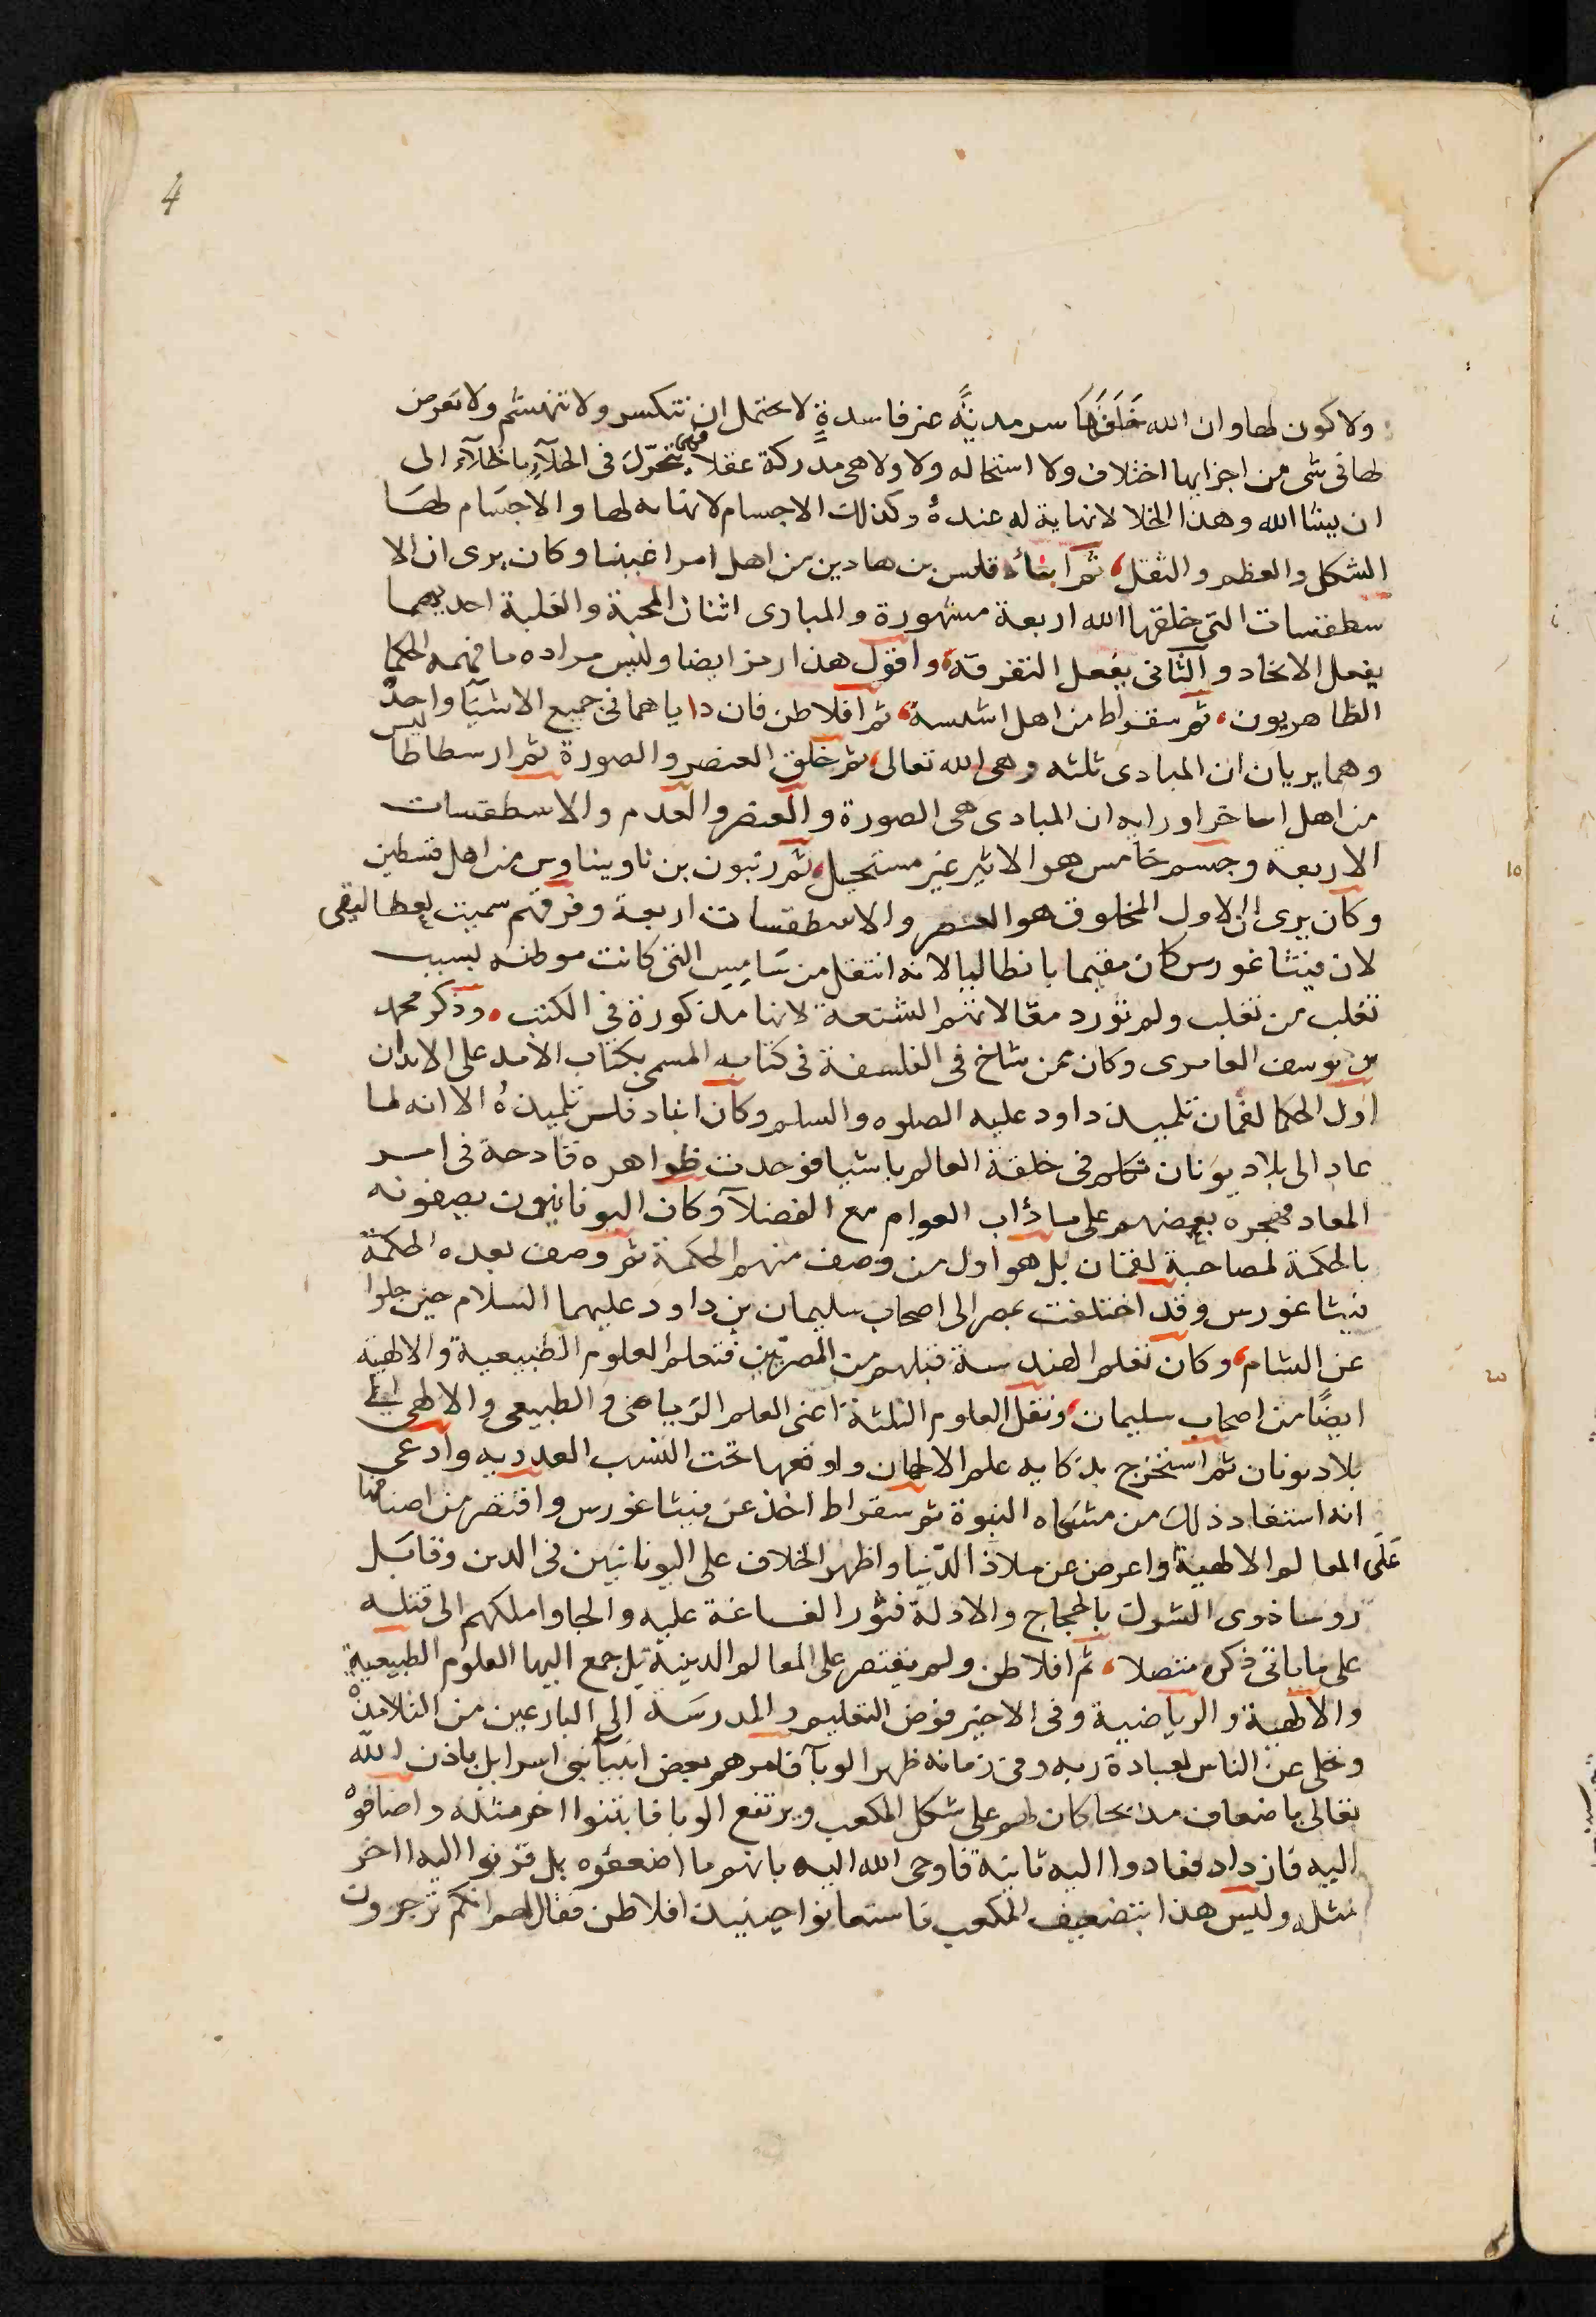 4
ولا كون لها وان الله خلقها سرمدية غير فاسدة لا يحتمل ان تتكسر ولا تنهشم ولا تعرض
لها فى شى من اجزايها اختلاف ولا استحاله ولا ولا هى مدركة عقلا فهى تتحرك فى الخلآء بالخلآء الى
ان يشا الله وهذا الخلا لا نهاية له عنده وكذلك الاجسام لا نهايه لها والاجسام لها
الشكل والعظم والثقل، ثم ابنادقلس بن هادين من اهل امراغبينا وكان يرى ان الا
سطقسات التى خلقها الله اربعة مشهورة والمبادى اثنان المحبة والغلبة احديهما
يفعل الاتحاد والثانى يفعل التفرقة، واقول هذا رمز ايضا وليس مراده ما فهمه الحكما
الظاهريون، ثم سقراط من اهل اشلسة، ثم افلاطن فان داياهما فى جميع الاشيآ واحد
وهما يريان ان المبادى ثلثه وهى الله تعالى، ثم خلق العنصر والصورة ثم ارسطاطاليس
من اهل اساخرا ورايه ان المبادى هى الصورة والعنصر والعدم والاسطقسات
الاربعة وجسم خامس هو الاثير غير مستحيل، ثم زنبون بن ناويناوس من اهل قسطين
وكان يرى ان الاول المخلوق هو العنصر والاسطقسات اربعة وفرقتهم سميت
لان فيثاغورس كان مقيما بانطاليا لانه انتقل من ساميس التى كانت موطنه بسبب
تغلب من تغلب ولم نورد مقالاتهم الشنعة لانها مذكورة فى الكتب، وذكر محمد
بن يوسف العامرى وكان ممن شاخ فى الفلسفة فى كتابه المسمى بكتاب الامد على الابدان
اول الحكما لقمان تلميذ داود عليه الصلوه والسلم وكان ابنادقلس تلميذه الا انه لما
عاد الى بلاد يونان تكلم فى خلقة العالم باشيا فوجدت ظواهره قادحة فى امر
المعاد فهجره بعضهم على ما دأب العوام مع الفضلآ وكان اليونانيون يصفونه
بالحكمة لمصاحبة لقمان بل هو اول من وصف منهم الحكمة ثم وصف بعده الحكمة
فيثاغورس وقد اختلفت بمصر الى اصحاب سليمان بن داود عليهما السلام حين جلوا
عن الشام، وكان تعلم الهندسة قبلهم من المصريين فتعلم العلوم الطبيعية والالهية
ايضًا من اصحاب سليمان، ونقل العلوم الثلثة اعنى العلم الرياضى والطبيعى والالهى الى
بلاد يونان ثم استخرج بذكايه علم الالحان واوقعها تحت النسب العدديه وادعى
انه استفاد ذلك من مشكاه النبوة ثم سقراط اخذ عن فيثاغورس واقتصر من اصنافها
على المعالم الالهية واعرض عن ملاذ الدنيا واظهر الخلاف على اليونانيين فى الدين وقابل
روسا ذوى الشرك بالحجاج والادلة فثورا الغاغة عليه والجاوا ملكهم الى قتله
على ما ياتى ذكره متصلا، ثم افلاطن ولم يقتصر على المعالم الدينية بل جمع اليها العلوم الطبيعية
والالهية والرياضية وفى الاخير فوض التعليم والمدرسة الى البارعين من التلامذه
وتخلى عن الناس لعبادة ربه وفى زمانه ظهر الوبآ فامرهم بعض انبيآ بنى اسرايل باذن الله
تعالى باضعاف مذبحا كان لهم على شكل المكعب ويرتفع الوبا فابتنوا اخر مثله واضافوه
اليه فازداد فعادوا اليه ثانية فاوحى الله اليه بانهم ما اضعفوه بل قرنوا اليه اخر
مثله وليس هذا بتضعيف المكعب فاستعانوا حينيذ افلاطن فقال لهم انكم تزجرون